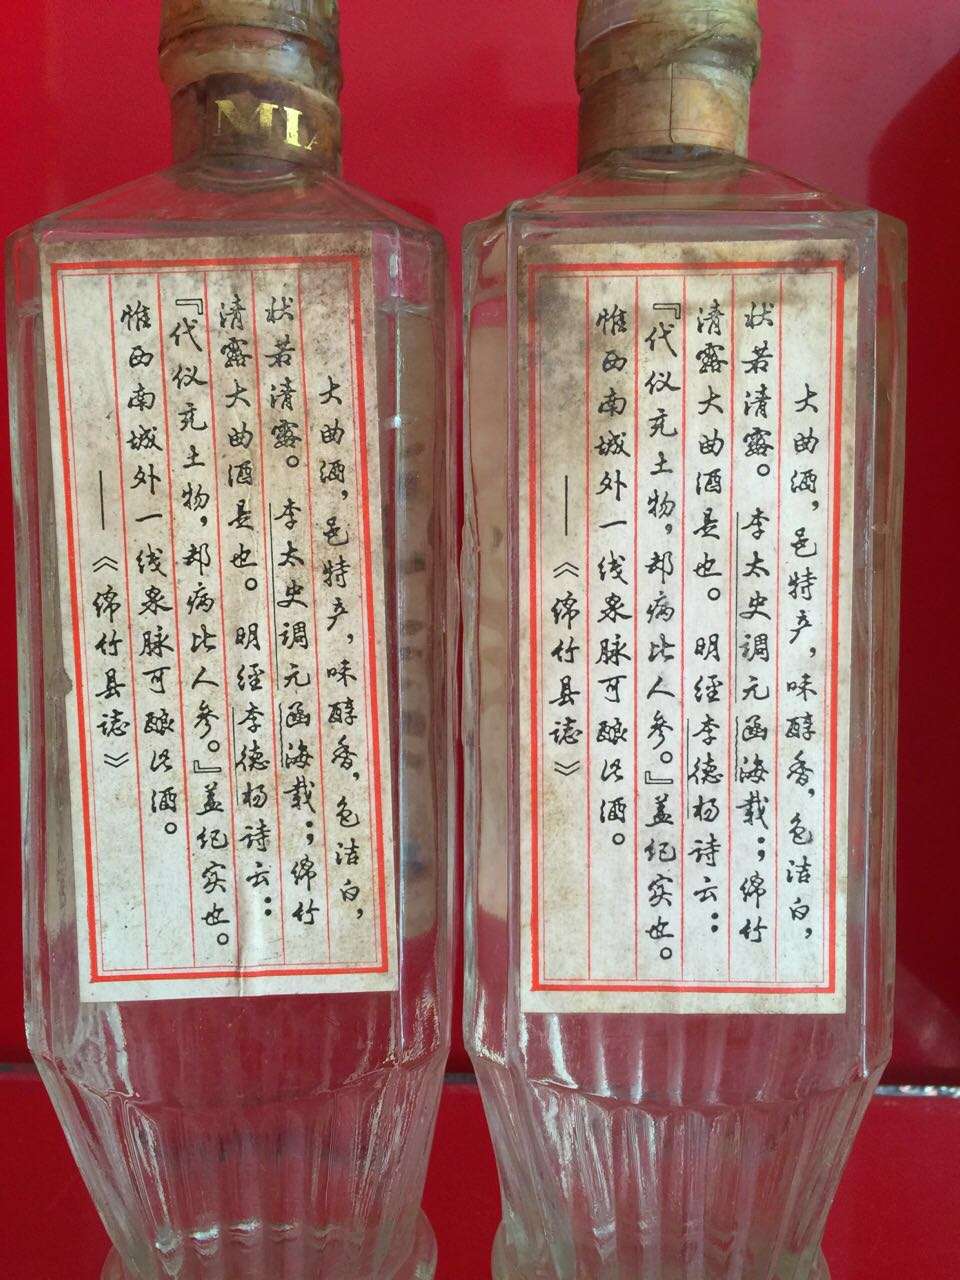 MIA
大曲酒，邑特产，味醇香，色洁白，
状若清露。李太史调元函海载：；绵竹
清露大曲酒是也。明经李德扬诗云：
『代仪充土物，却病比人参。』盖纪实也。
惟西南城外一线泉脉可酿此酒。
——《绵竹县誌》
大曲酒，邑特产，味醇香，色洁白，
状若清露。李太史调元函海载：；绵竹
清露大曲酒是也。明经李德扬诗云：
『代仪充土物，却病比人参。』盖纪实也。
惟西南城外一线泉脉可酿此酒。
——《绵竹县誌》